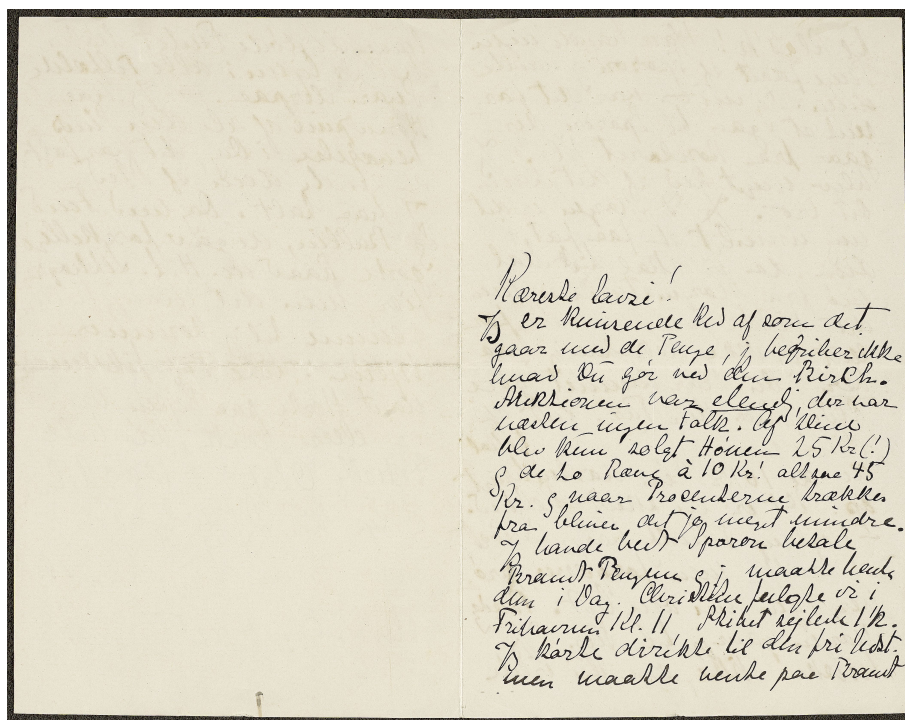 Kæreste Lavzi!
Jg er knusende ked af som det
gaar med de Penge, jg begriber ikke
hvad Du gør ved dem Kirch.
Auktionen var elendig, der var
næsten ingen Folk. Af Dine
blev kun solgt Hønen 25 Kr (!)
g de to Ræve à 10 Kr! altsaa 45
Kr. g naar Procenterne trækkes
fra bliver det jo meget mindre.
Jg havde bedt Sparon betale
Brandt Pengene g jg maatte hente
dem i Dag. Christine fulgte vi i
Frihavnen Kl. 11 Skibet sejlede 1 K.
Jg kørte dirækte til den fri Udst.
men maatte vente paa Brandt